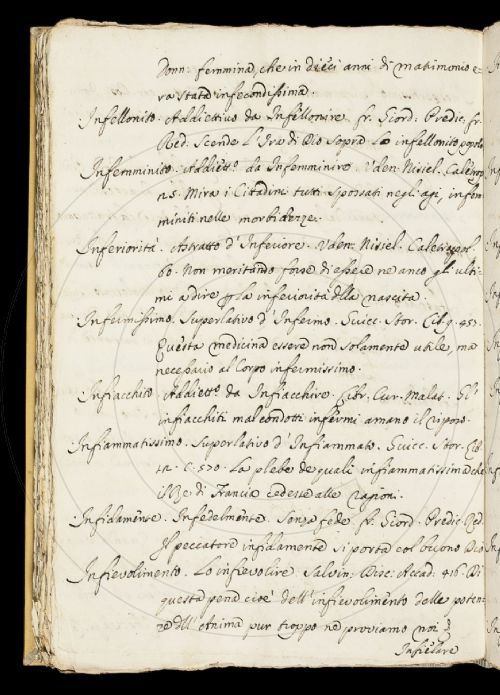 donn: femmina, che in dieci anni di matrimonio e-
ra stata infecondissima.
Infellonito. Addiettivo da Infellonire. fr. Giord: Predic. fr.
Red. Scende l'Ira di Dio sopra lo infellonito popolo
Infemminito. Addiett.º da Infemminire. Uden. Nisiel. Caletrop
25. Mira i Citadini tutti spossati negl'agi, infem-
miniti nelle morbidezze.
Inferiorità. Astratto d'Inferiore. Uden. Nisiel. Caletropol
60. Non meritando forse di essere ne anco gl'ulti-
mi a dire la inferiorità della nascita.
Infermissimo. Superlativo d'Infermo. Guicc. Stor. Lib. 9. 453.
Questa medicina essere non solamente utile, ma
necessario al Corpo infermissimo.
Infiacchito. Addiett.º da Infiacchire. Libr. Cur. Malat. Gl'
infiacchiti mal condotti infermi amano il riposo.
Infiammatissimo. Superlativo d'Infiammato. Guicc. Stor. Lib.
12. C. 570. La plebe de quali infiammatissima che
il Rè di Francia cedesse alle ragioni.
Infidamente. Infedelmente. Senza fede. fr. Giord. Predic. Red.
Il peccatore infidamente si porta col buono Dio
Infievolimento. Lo infievolire. Salvin: Disc: Accad: 416. Di
questa pena cioè dell'infievolimento delle poten-
ze dell'Anima pur troppo ne proviamo noi
Infievolire